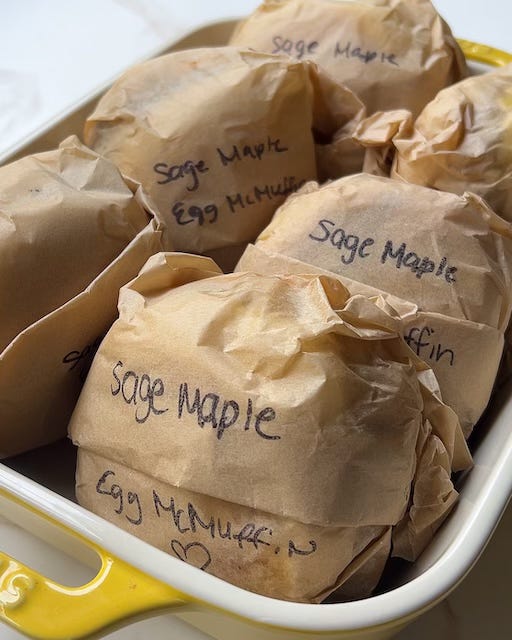 Sage Maple
Sage Maple
Egg McMuffin
Sage Maple
ffin
Sage Maple
Egg McMuffin